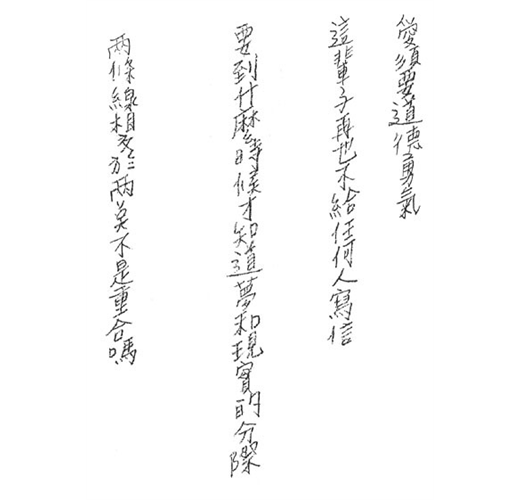 愛須要道德勇氣
這輩子再也不給任何人寫信
要到什麼時候才知道夢和現實的分際
兩條線相交於兩美不是重合嗎